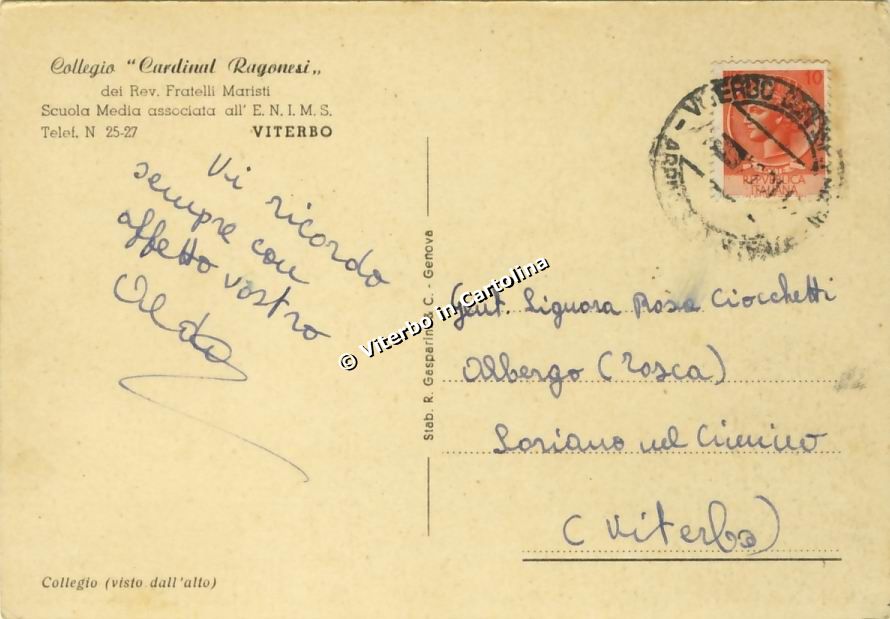 Collegio "Cardinal Ragonesi„
dei Rev. Fratelli Maristi
Scuola Media associata all' E. N. I. M. S.
Telef. N 25-27 VITERBO
Vi ricordo
sempre con
affetto vostro
Aldo
Stab. R. Gasparini & C. - Genova
© Viterbo in Cartolina
10
REPVBLICA
ITALIANA
VITERBO
Gent. Signora Rosa Ciocchetti
Albergo (Tosca)
Soriano nel Cimino
(Viterbo)
Collegio (visto dall'alto)